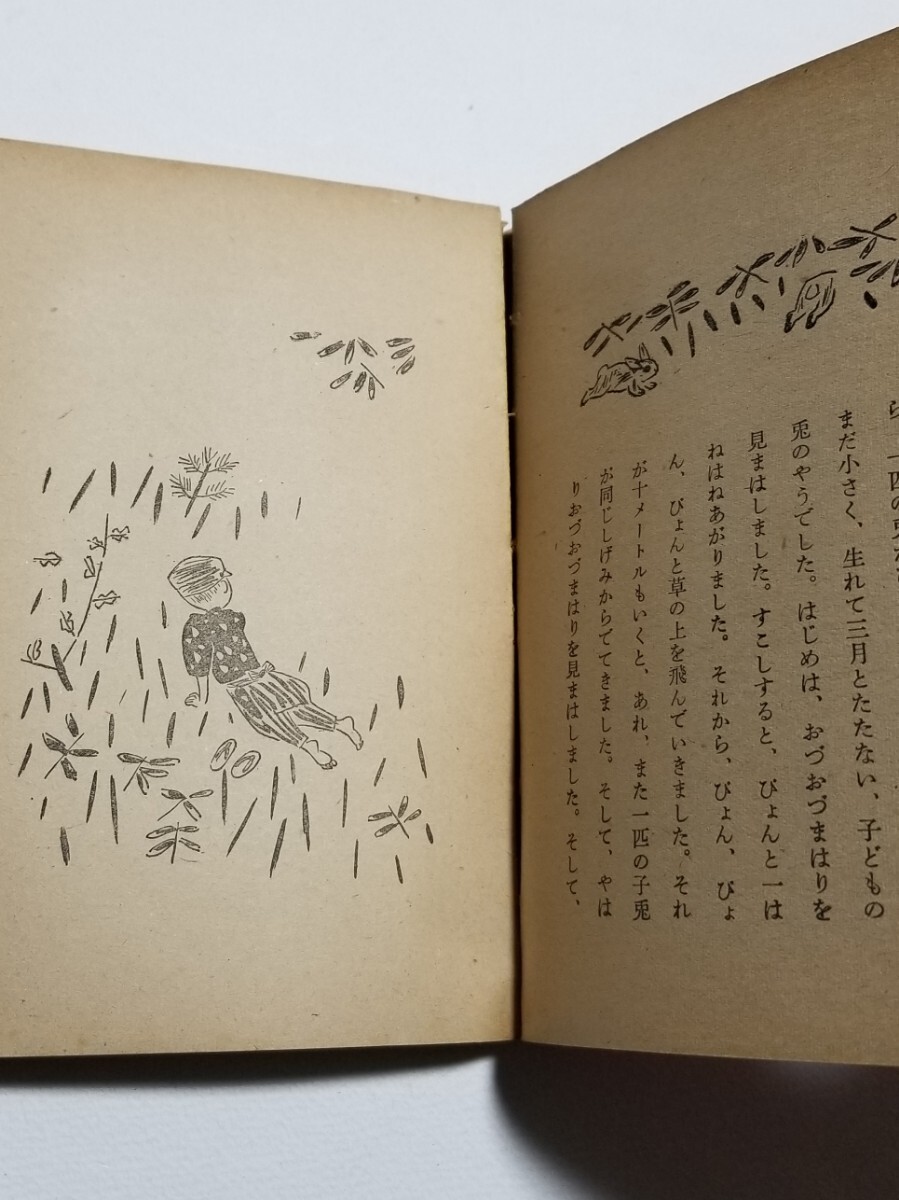 一匹の兎
まだ小さく、生れて三月とたたない、子どもの
兎のやうでした。はじめは、おづおづまはりを
見まはしました。すこしすると、ぴょんと一は
ねはねあがりました。それから、ぴょん、ぴょ
ん、ぴょんと草の上を飛んでいきました。それ
が十メートルもいくと、あれ、また一匹の子兎
が同じしげみからでてきました。そして、やは
りおづおづまはりを見まはしました。そして、